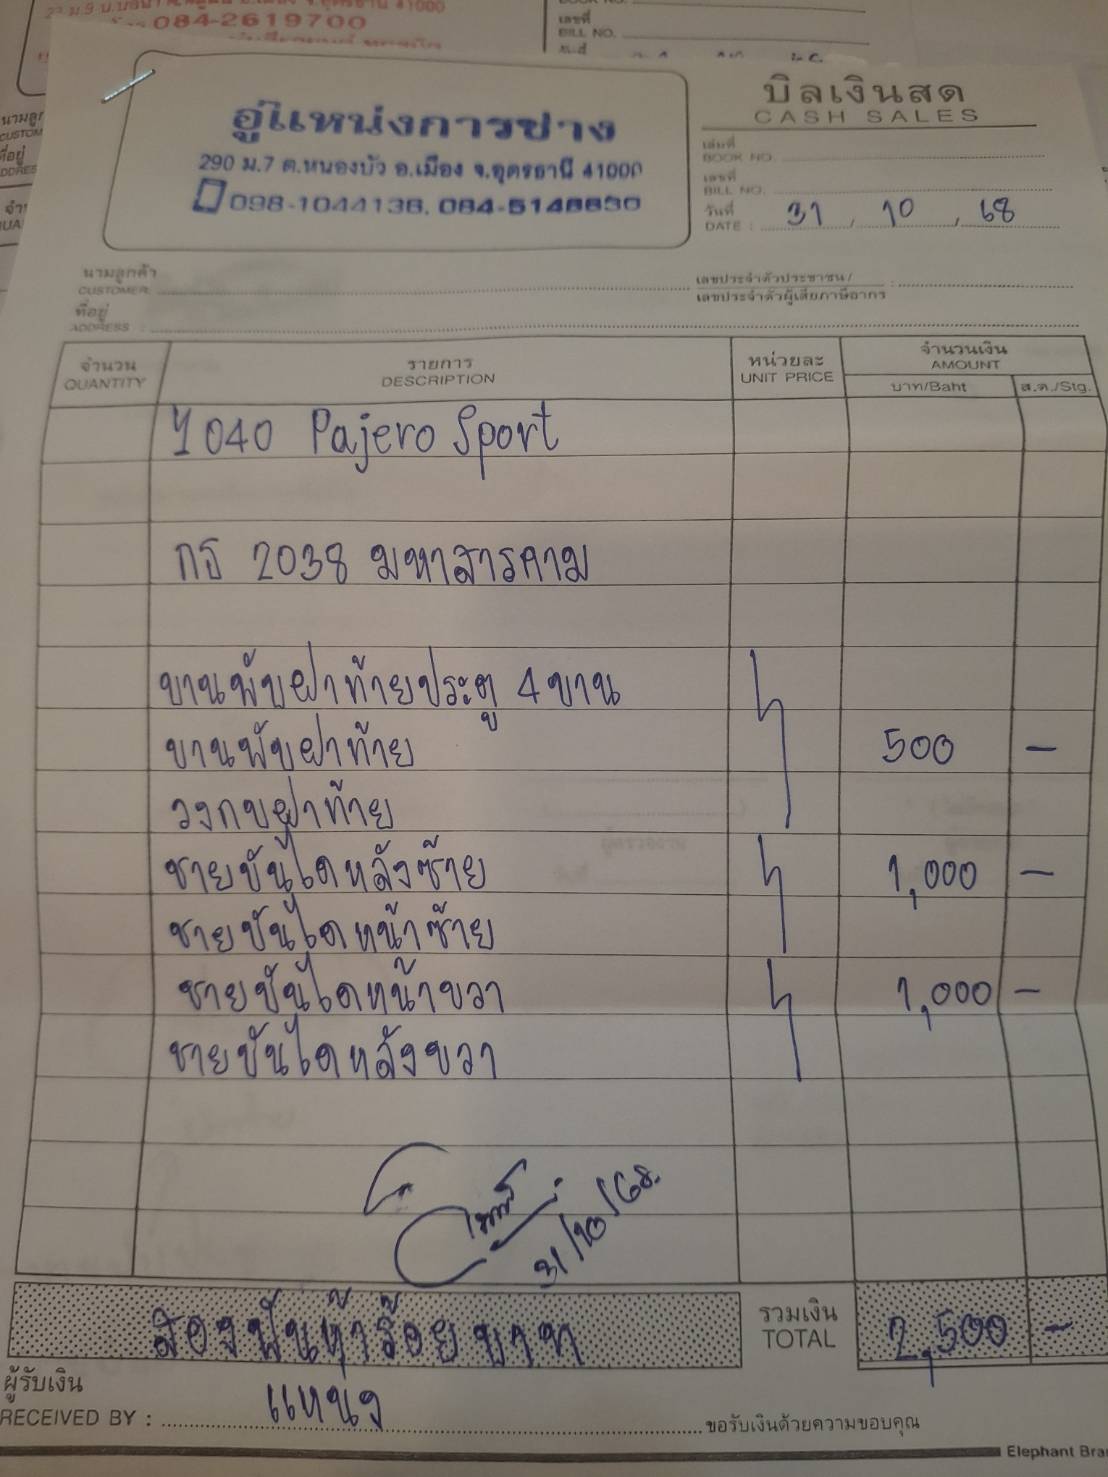 084-2619700
เลขที่
BILL NO.
อู่แหน่งการช่าง
290 ม.7 ต.หนองบัว อ.เมือง จ.อุดรธานี 41000
098-1044136, 084-5148830
บิลเงินสด
CASH SALES
เล่มที่
BOOK NO.
เลขที่
BILL NO.
วันที่
DATE : 31 / 10 / 68
นามลูกค้า
CUSTOMER:
เลขประจำตัวประชาชน/ :
เลขประจำตัวผู้เสียภาษีอากร
ที่อยู่
ADDRESS :
จำนวน รายการ หน่วยละ จำนวนเงิน
QUANTITY DESCRIPTION UNIT PRICE AMOUNT
บาท/Baht ส.ต./Stg.
1040 Pajero Sport
กธ 2038 มหาสารคาม
บานพับฝาท้ายประตู 4 บาน
บานพับฝาท้าย 500 –
วงกบฝาท้าย
ชายบันไดหลังซ้าย 1,000 –
ชายบันไดหน้าซ้าย
ชายบันไดหน้าขวา 1,000 –
ชายบันไดหลังขวา
31/10/68.
สองพันห้าร้อยบาท
รวมเงิน
TOTAL 2,500 –
ผู้รับเงิน
RECEIVED BY : แหน่ง ขอรับเงินด้วยความขอบคุณ